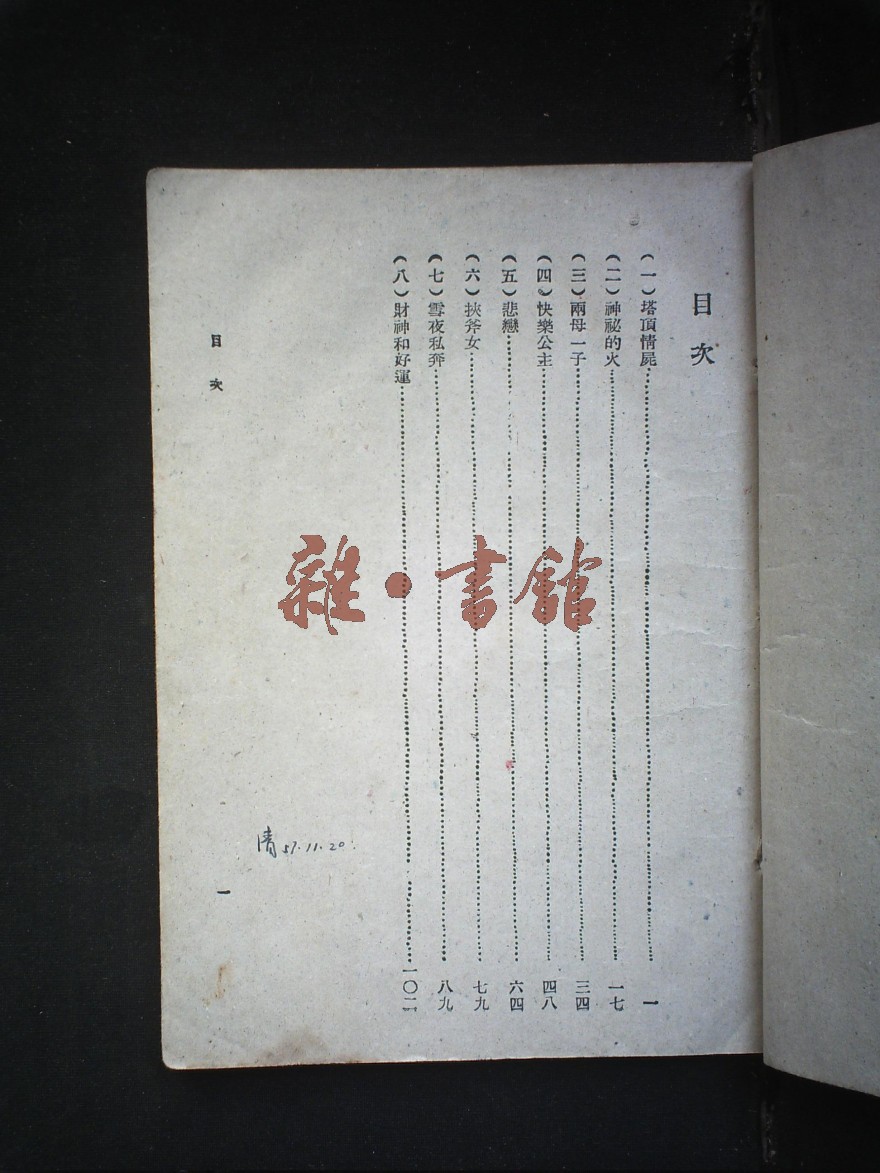 目次
(一)塔頂情屍⋯⋯一
(二)神祕的火⋯⋯一七
(三)兩母一子⋯⋯三四
(四)快樂公主⋯⋯四八
(五)悲戀⋯⋯六四
(六)挾斧女⋯⋯七九
(七)雪夜私奔⋯⋯八九
(八)財神和好運⋯⋯一〇二
目次
一
清 57.11.20.
雜·書館